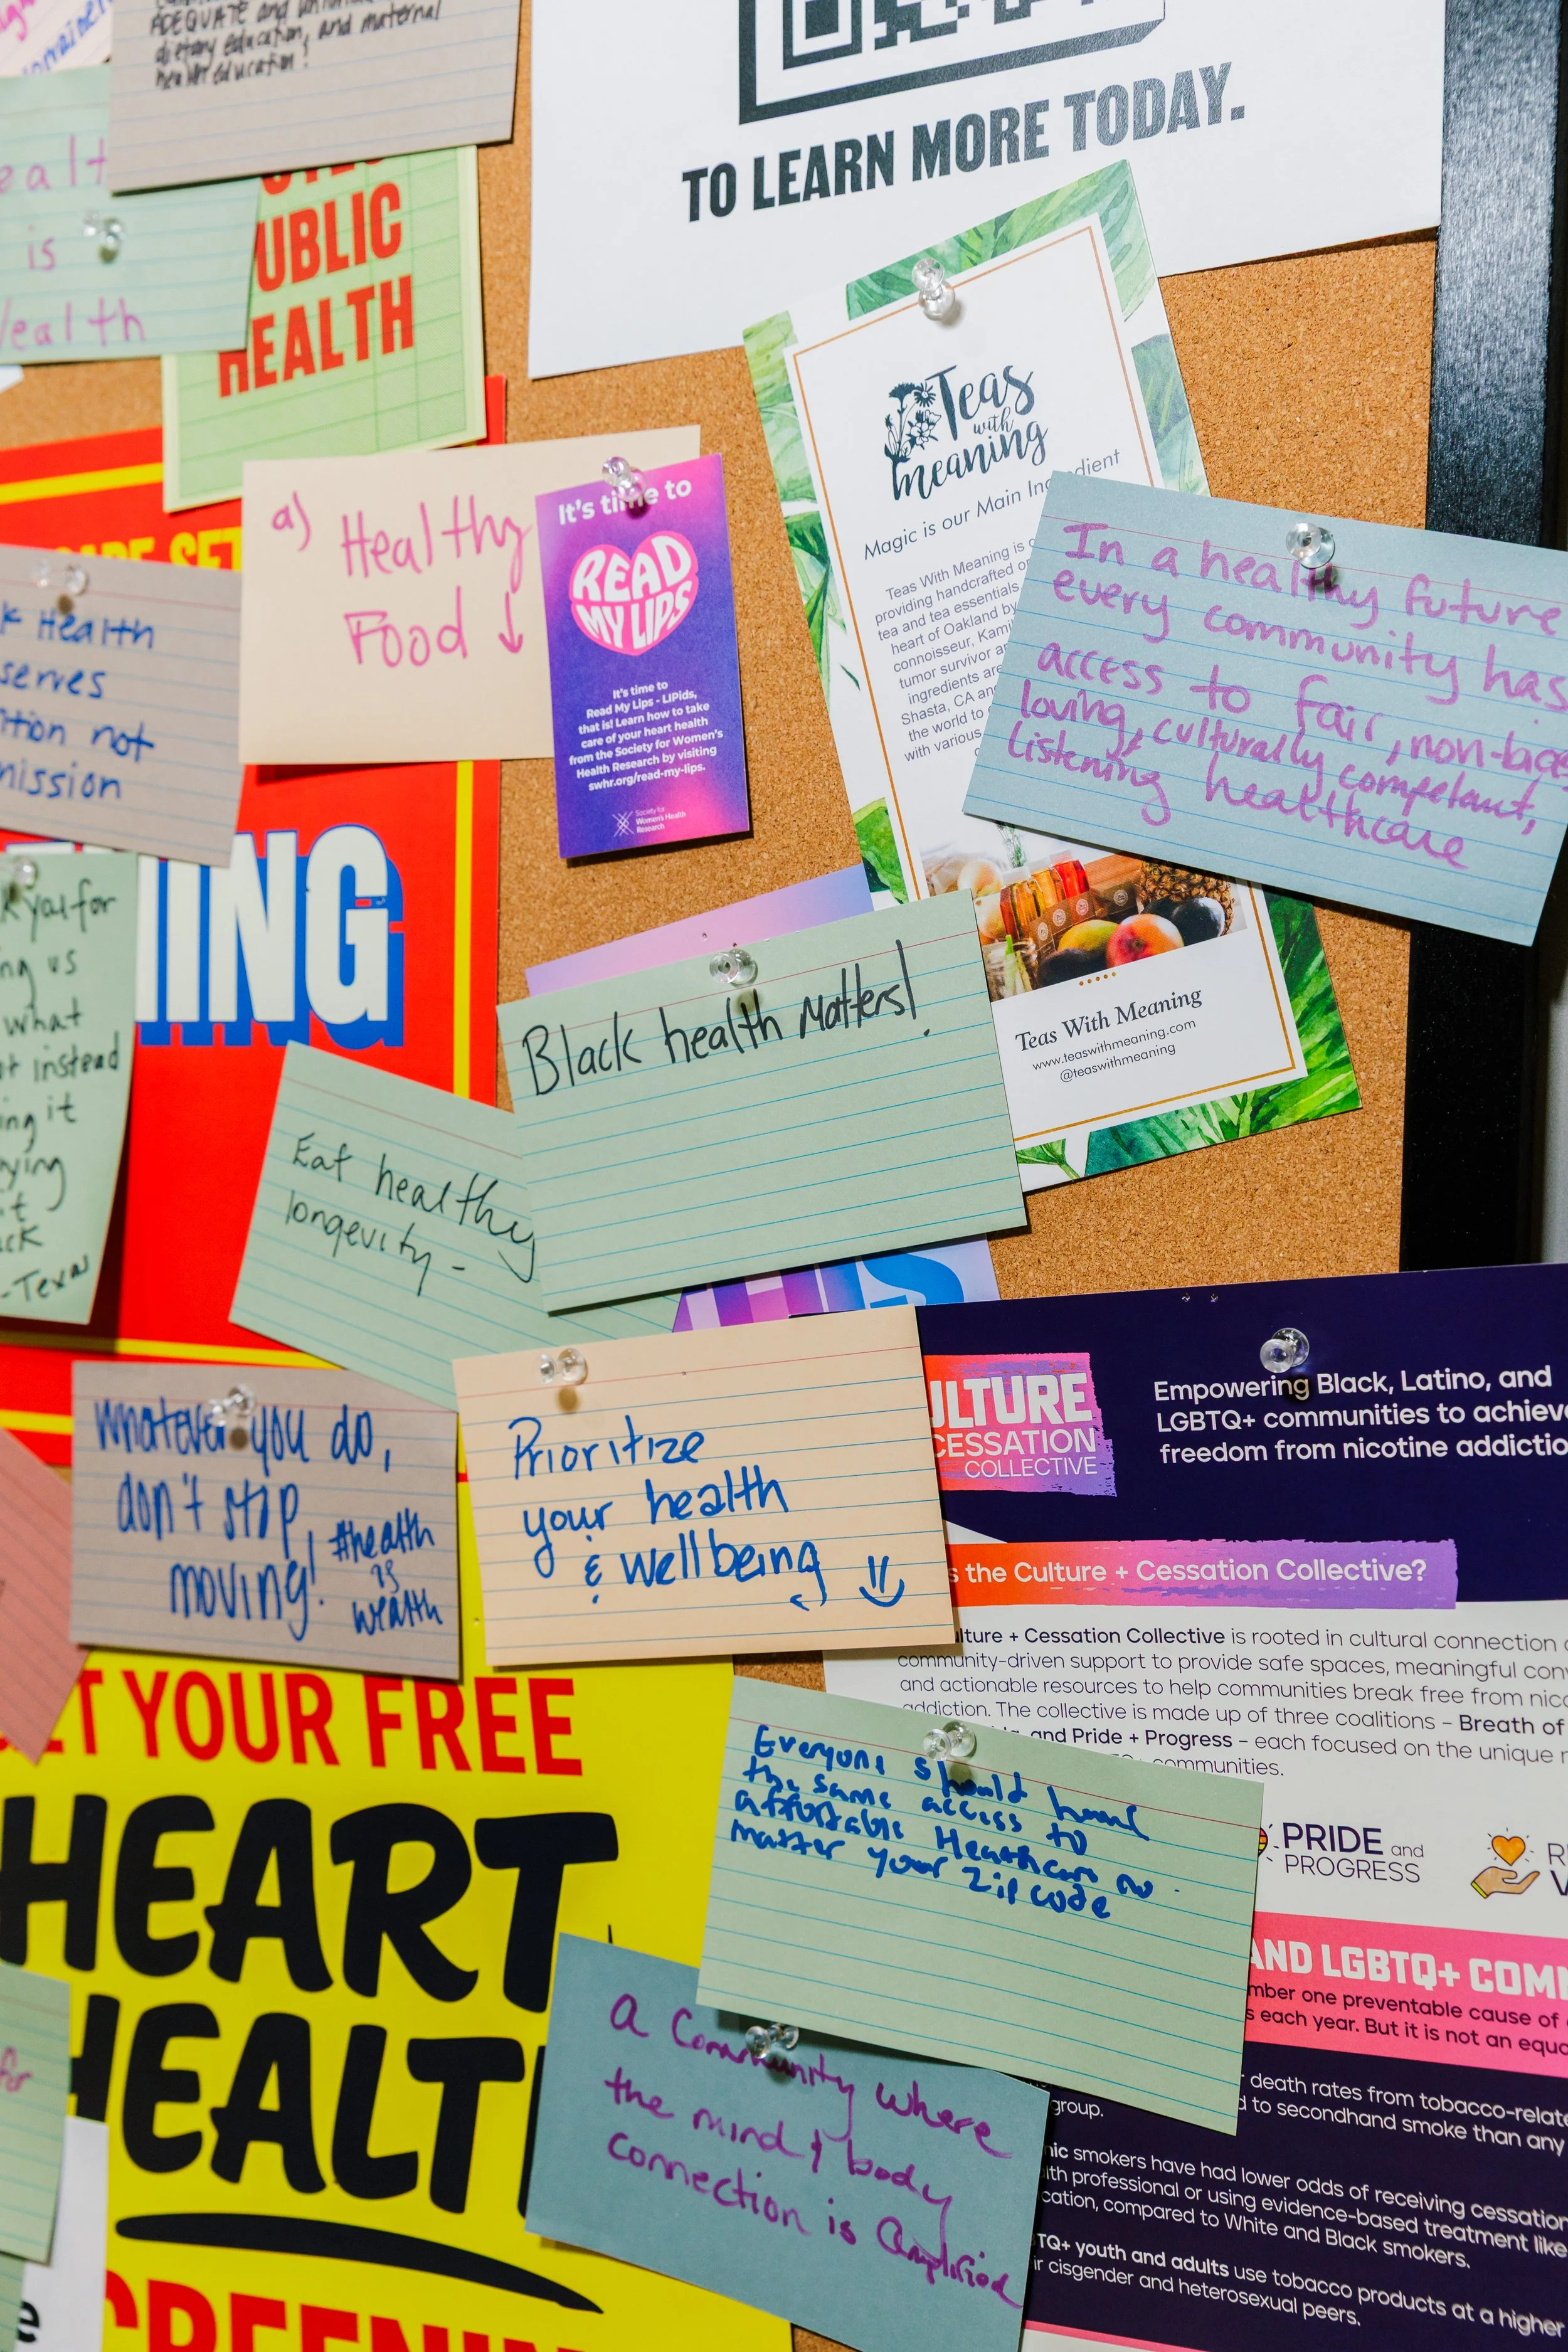 ADEQUATE and
dietary education, and maternal
health education!
TO LEARN MORE TODAY.
is
UBLIC
HEALTH
a) Healthy
Food ↓
It's time to
READ
MY LIPS
It's time to
Read My Lips - LIPids,
that is! Learn how to take
care of your heart health
from the Society for Women's
Health Research by visiting
swhr.org/read-my-lips.
Society for
Women's Health
Research
Teas
with
meaning
Magic is our Main Ingredient
Teas With Meaning is
providing handcrafted
tea and tea essentials
heart of Oakland by
connoisseur, Kami
tumor survivor
ingredients are
Shasta, CA
the world to
with various
Teas With Meaning
www.teaswithmeaning.com
@teaswithmeaning
In a healthy future
every community has
access to fair, non-bias
loving, culturally competant,
listening healthcare
k Health
serves
tion not
mission
ING
k you for
ng us
what
instead
ing it
ying
ck
-Texas
Black health Matters!
Eat healthy
longevity -
HIS
Whatever you do,
don't stop,
moving!
#health
is
wealth
Prioritize
your health
& wellbeing
ULTURE
CESSATION
COLLECTIVE
Empowering Black, Latino, and
LGBTQ+ communities to achieve
freedom from nicotine addictio
s the Culture + Cessation Collective?
ulture + Cessation Collective is rooted in cultural connection
community-driven support to provide safe spaces, meaningful con
and actionable resources to help communities break free from nico
addiction. The collective is made up of three coalitions – Breath of
and Pride + Progress – each focused on the unique
communities.
ET YOUR FREE
HEART
HEALT
Everyone should have
the same access to
affordable Heathcare no
matter your Zip code
PRIDE and
PROGRESS
AND LGBTQ+ COM
mber one preventable cause of
s each year. But it is not an equa
a Community where
the mind & body
connection is amplified
death rates from tobacco-relate
d to secondhand smoke than any
group.
nic smokers have had lower odds of receiving cessation
lth professional or using evidence-based treatment like
cation, compared to White and Black smokers.
TQ+ youth and adults use tobacco products at a higher
ir cisgender and heterosexual peers.
for